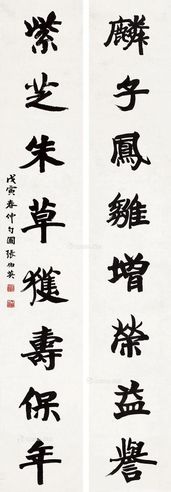 麟子鳳雛增榮益譽
紫芝朱草獲壽保年
戊寅春仲勺圃張伯英